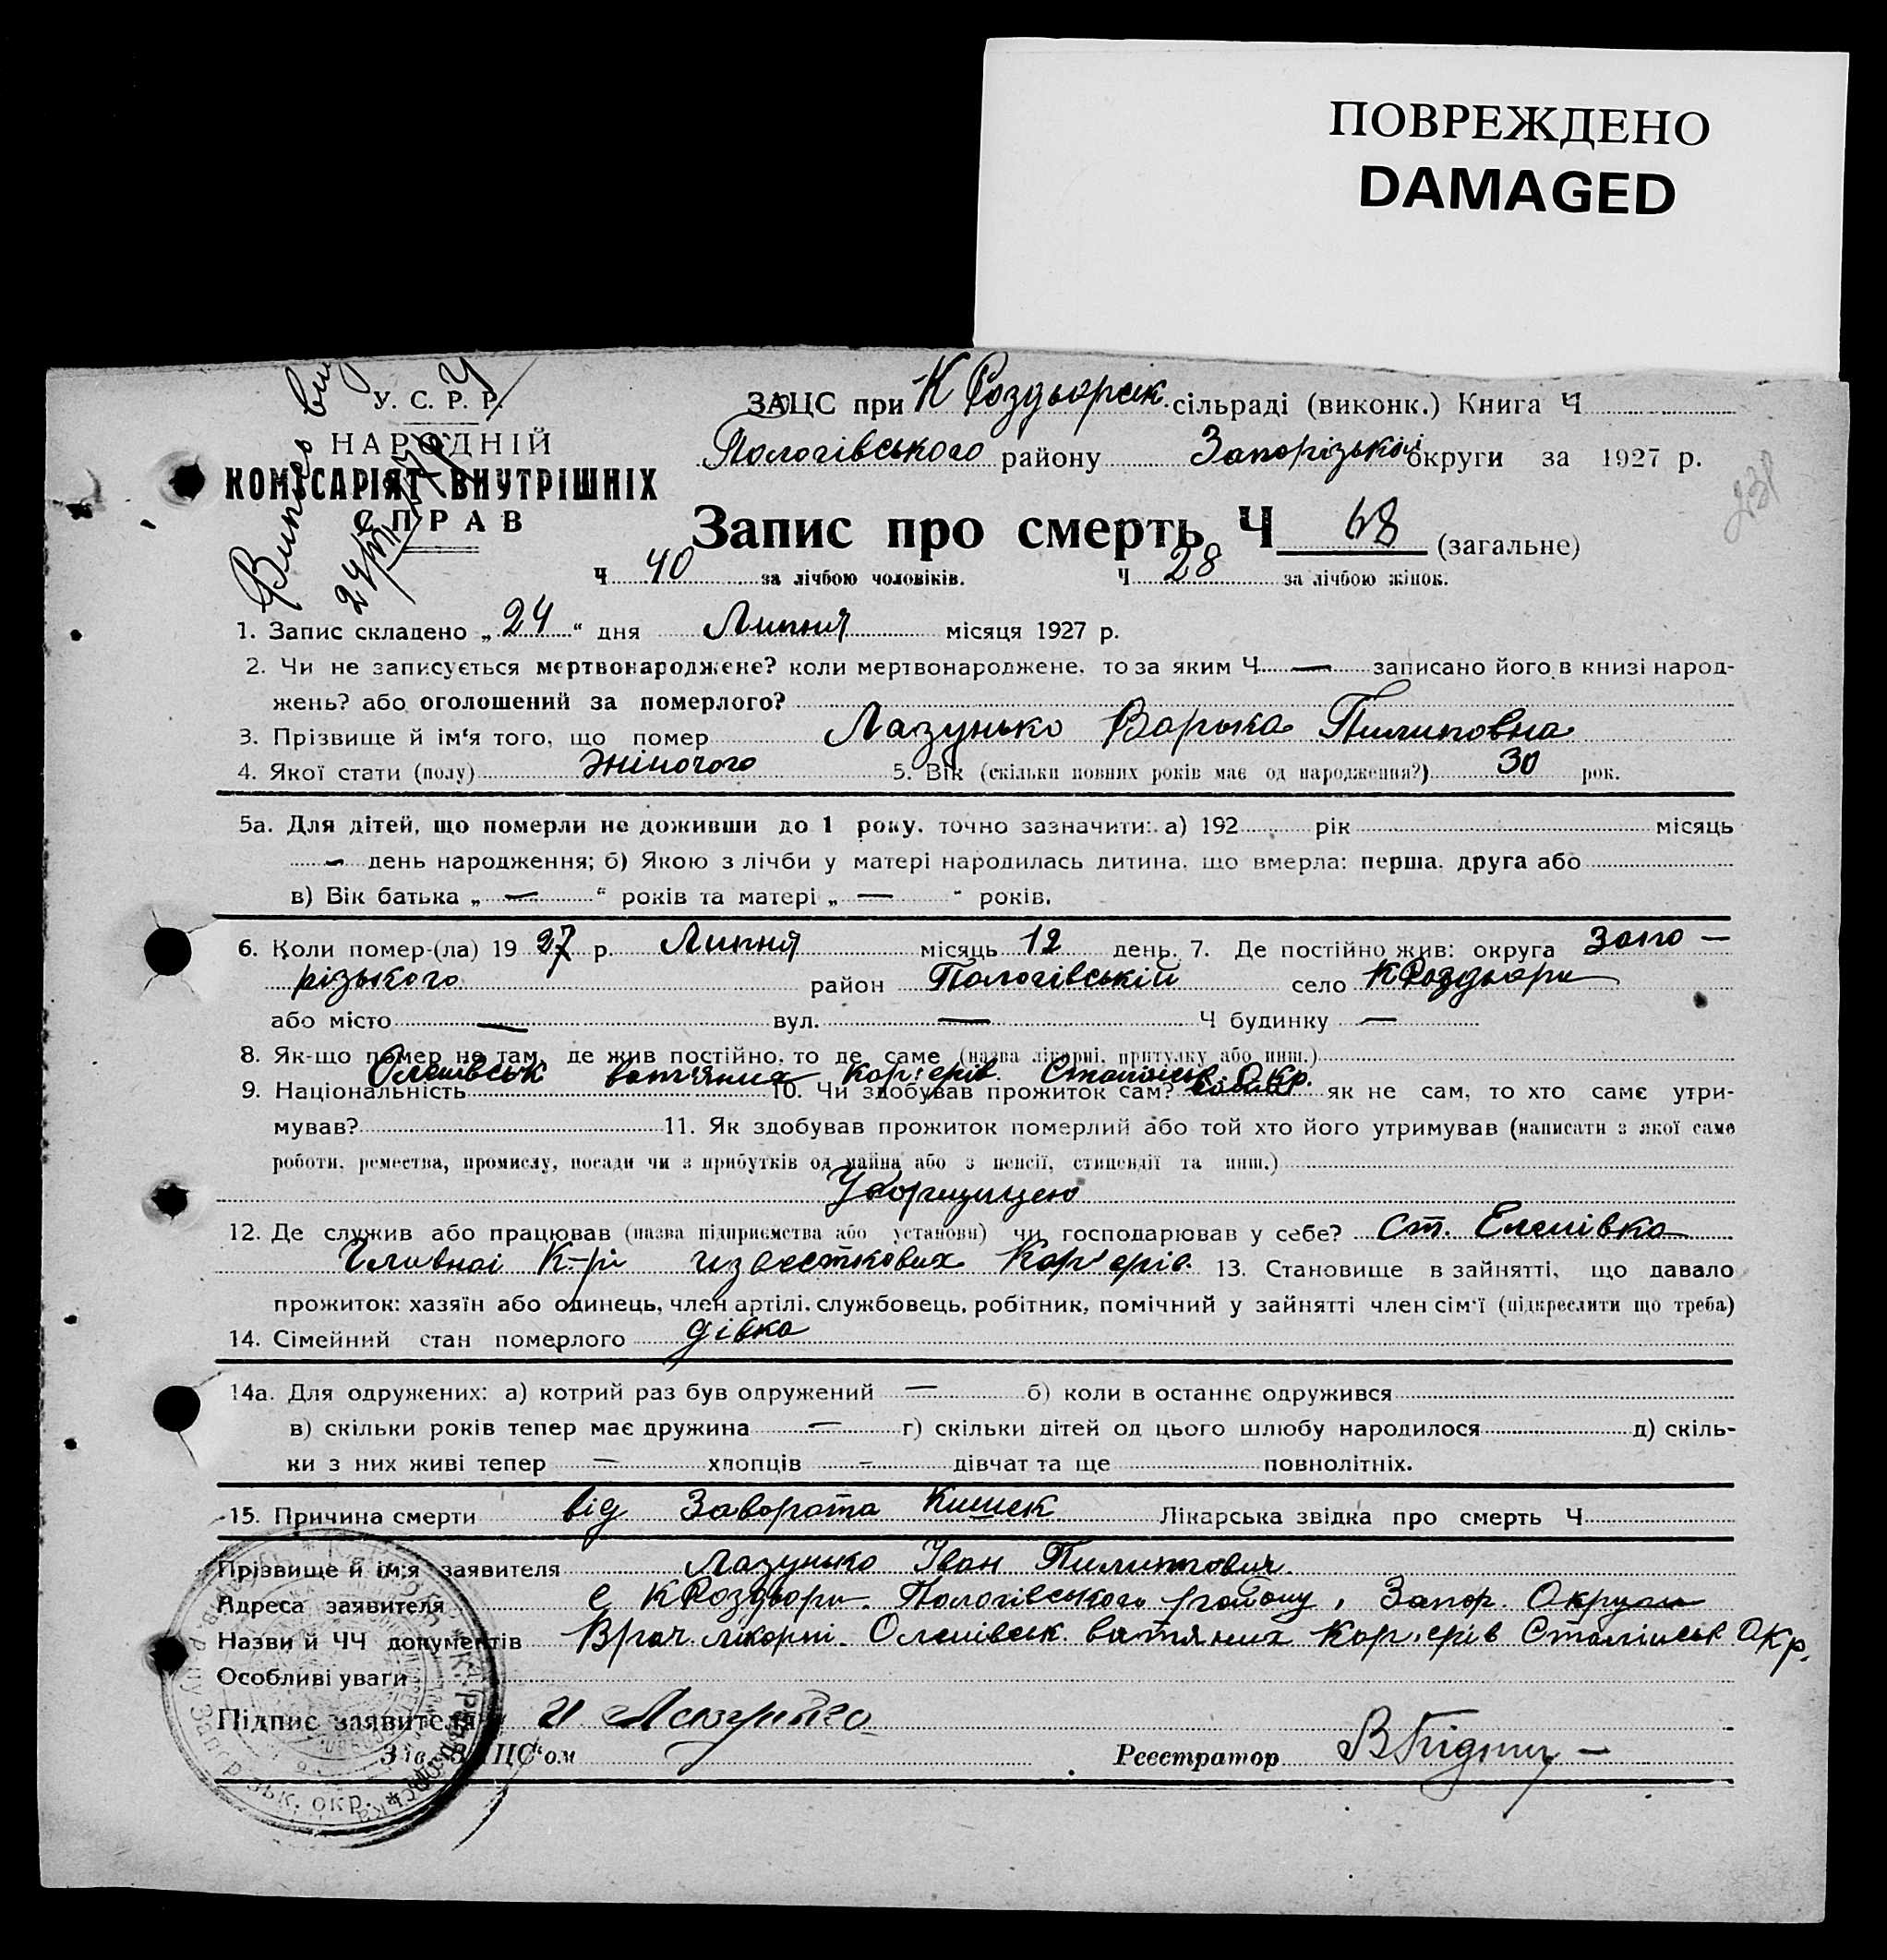 ПОВРЕЖДЕНО
DAMAGED
У. С. Р. Р.
НАРОДНІЙ
КОМІСАРІЯТ ВНУТРІШНІХ
СПРАВ
ЗАЦС при К Роздьорськ. сільраді (виконк.) Книга Ч
Пологівського району Запорізької округи за 1927 р.
Запис про смерть Ч 68 (загальне)
Ч 40 за лічбою чоловіків. Ч 28 за лічбою жінок.
1. Запис складено „24“ дня Липня місяця 1927 р.
2. Чи не записується мертвонароджене? коли мертвонароджене, то за яким Ч — записано його в книзі народ-
жень? або оголошений за померлого?
3. Прізвище й ім‘я того, що помер Лазунько Варька Пилиповна
4. Якої стати (полу) Жіночого 5. Вік (скільки повних років має од народження?) 30 рок.
5а. Для дітей, що померли не доживши до 1 року, точно зазначити: а) 192 рік місяць
— день народження; б) Якою з лічби у матері народилась дитина, що вмерла: перша, друга або
в) Вік батька „—“ років та матері „—“ років.
6. Коли помер-(ла) 1927 р. Липня місяць 12 день. 7. Де постійно жив: округа Запо—
різького район Пологівській село К Роздьори
або місто — вул. — Ч будинку —
8. Як-що помер не там, де жив постійно, то де саме (назва лікарні, притулку або инш.)
Оленівськ вапняних Кар'єрів. Сталінськ. Окр.
9. Національність 10. Чи здобував прожиток сам? як не сам, то хто саме утри-
мував? 11. Як здобував прожиток померлий або той хто його утримував (написати з якої саме
роботи, ремества, промислу, посади чи з прибутків од майна або з пенсії, стипендії та инш.)
Уборщицею
12. Де служив або працював (назва підприємства або установи) чи господарював у себе? ст. Еленівка
Главної К-рі известкових Кар'єрів. 13. Становище в зайнятті, що давало
прожиток: хазяїн або одинець, член артілі, службовець, робітник, помічний у зайнятті член сім‘ї (підкреслити що треба)
14. Сімейний стан померлого дівка
14а. Для одружених: а) котрий раз був одружений — б) коли в останнє одружився
в) скільки років тепер має дружина — г) скільки дітей од цього шлюбу народилося д) скіль-
ки з них живі тепер — хлопців — дівчат та ще повнолітніх.
15. Причина смерти від Заворота Кишек Лікарська звідка про смерть Ч
Прізвище й ім‘я заявителя Лазунько Іван Пилипович.
Адреса заявителя с К Роздьори. Пологівського району, Запор. Округи
Назви й ЧЧ документів Врач. лікарні. Оленівськ вапняних Кар'єрів Сталінськ Окр.
Особливі уваги
Підпис заявителя И Лазунько
Зав. ЗАЦС‘ом Реєстратор